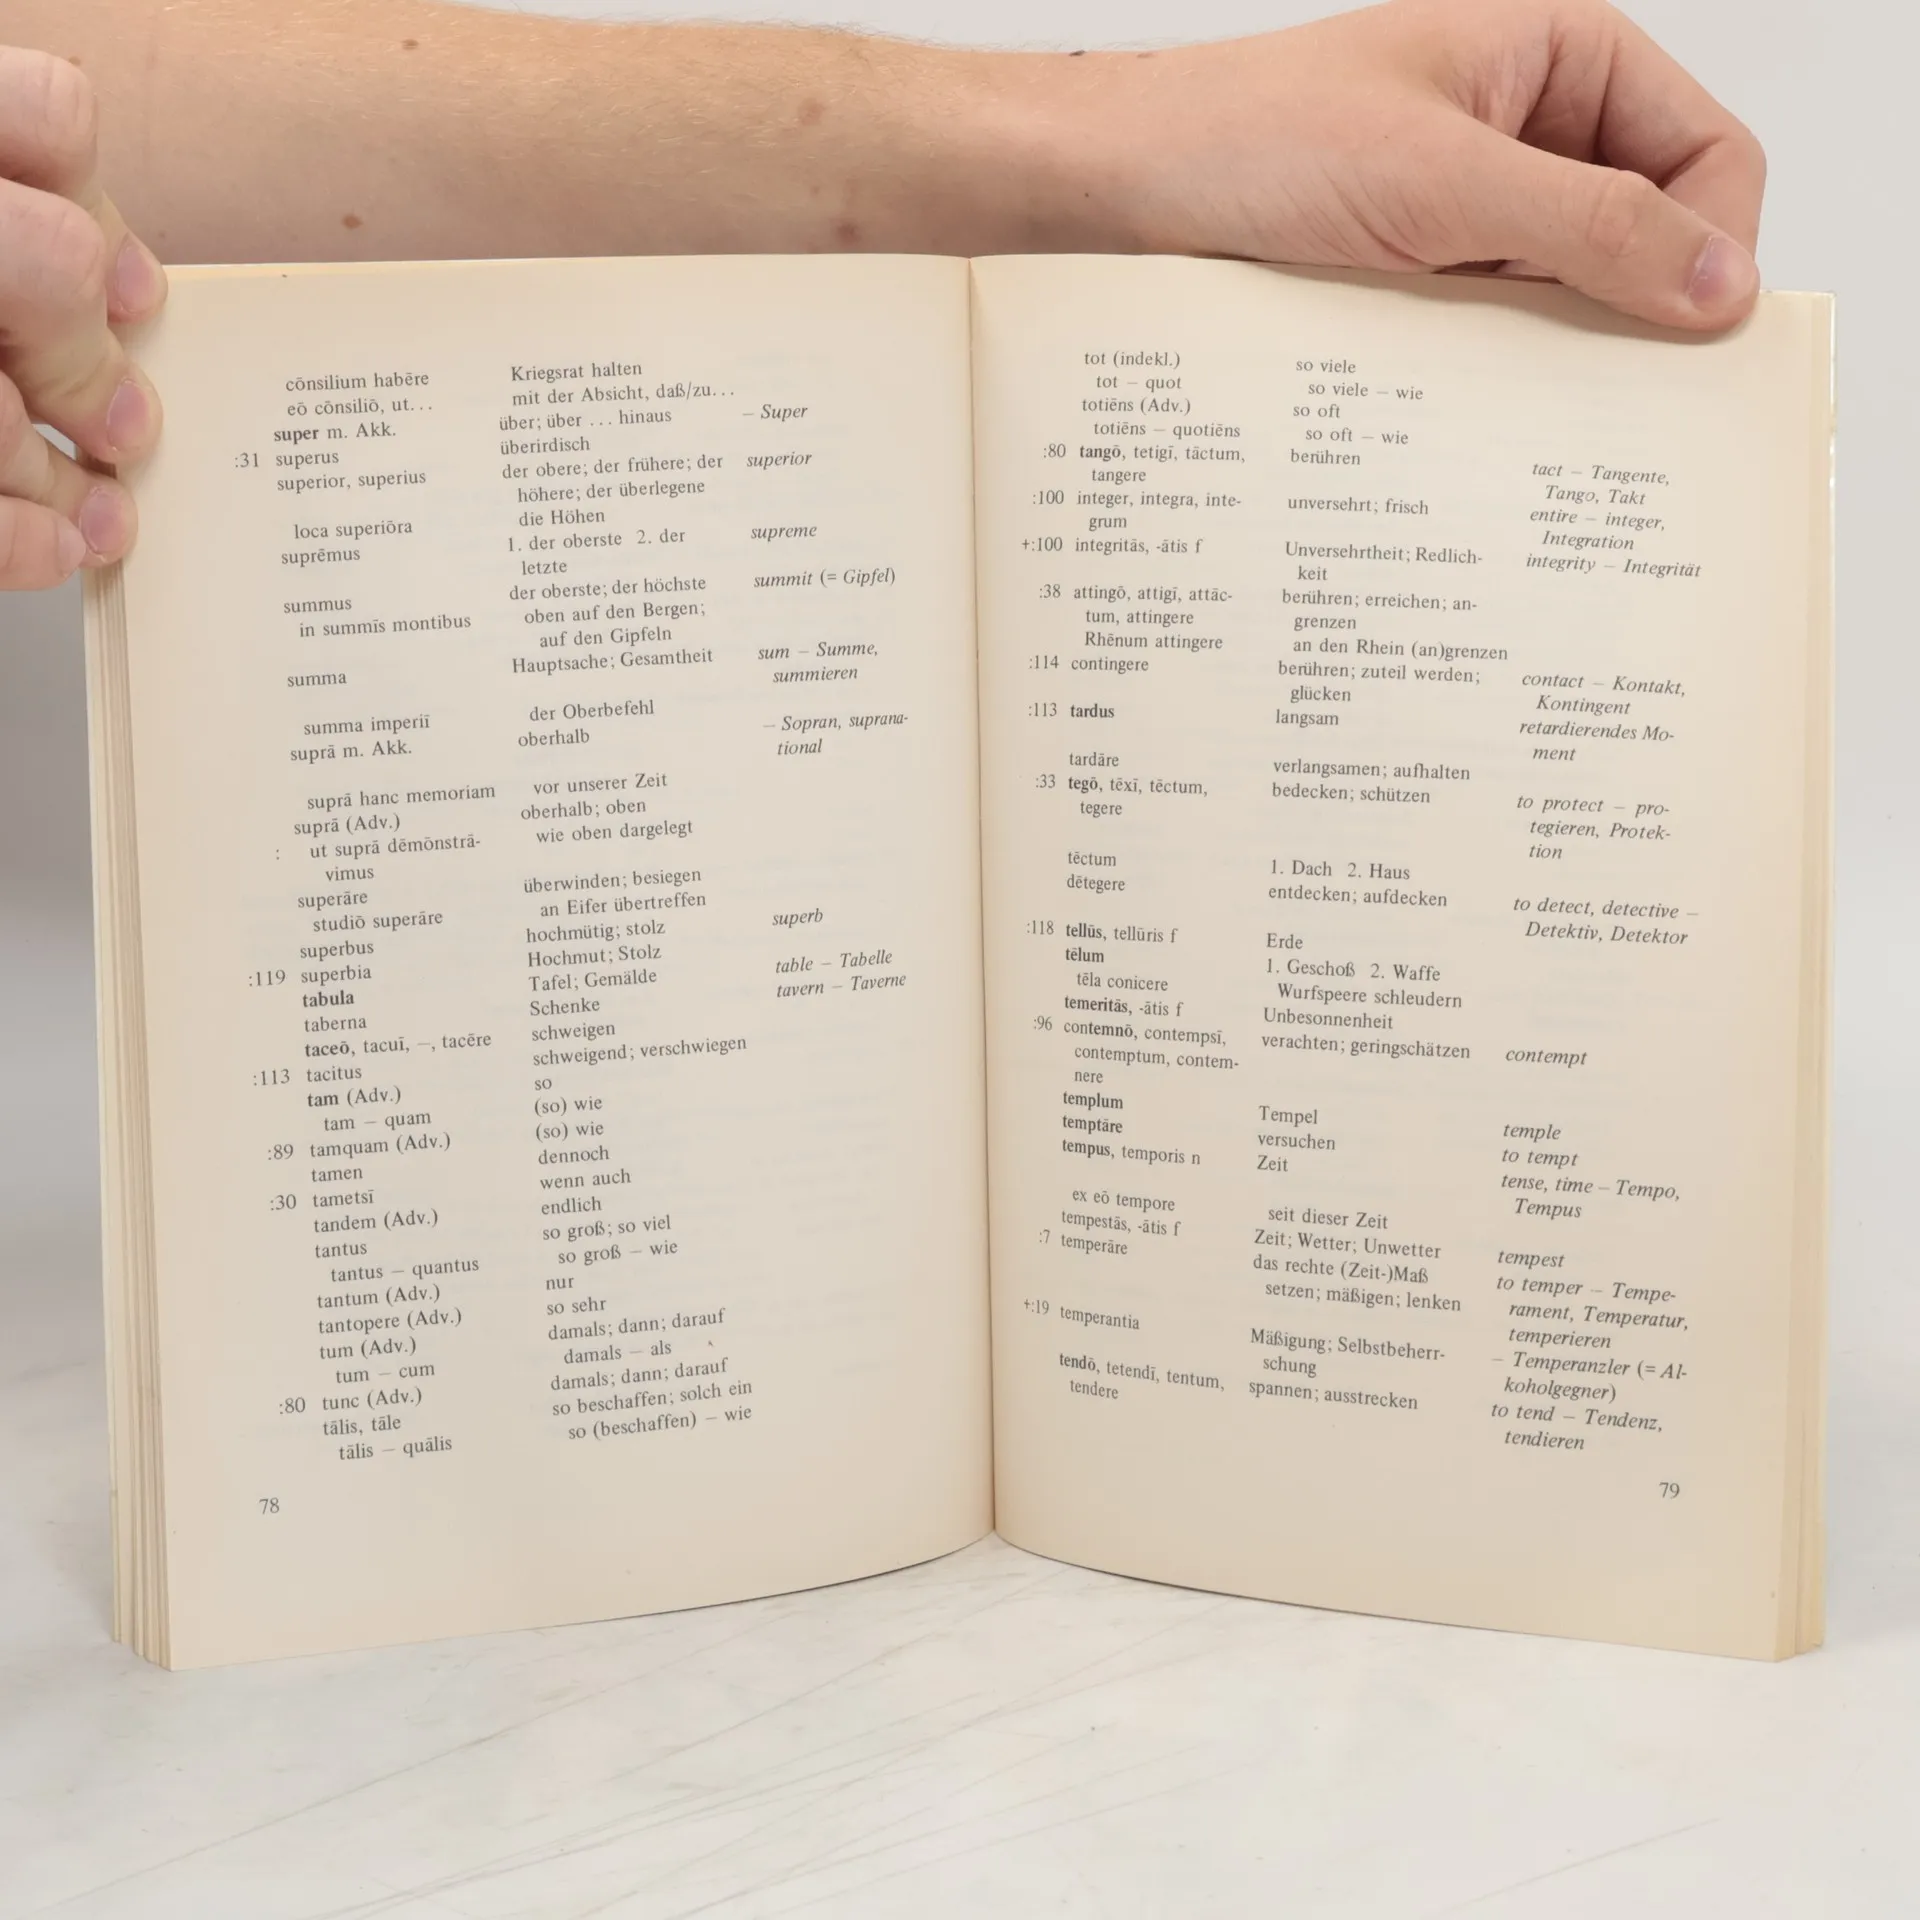 cōnsilium habēre Kriegsrat halten
eō cōnsiliō, ut... mit der Absicht, daß/zu...
super m. Akk. über; über ... hinaus – Super
:31 superus überirdisch
superior, superius der obere; der frühere; der superior
höhere; der überlegene
loca superiōra die Höhen
suprēmus 1. der oberste 2. der supreme
letzte
summus der oberste; der höchste summit (= Gipfel)
in summīs montibus oben auf den Bergen;
auf den Gipfeln
summa Hauptsache; Gesamtheit sum – Summe,
summieren
summa imperiī der Oberbefehl
suprā m. Akk. oberhalb – Sopran, suprana-
tional
suprā hanc memoriam vor unserer Zeit
suprā (Adv.) oberhalb; oben
: ut suprā dēmōnstrā- wie oben dargelegt
vimus
superāre überwinden; besiegen
studiō superāre an Eifer übertreffen
superbus hochmütig; stolz superb
:119 superbia Hochmut; Stolz
tabula Tafel; Gemälde table – Tabelle
taberna Schenke tavern – Taverne
taceō, tacuī, –, tacēre schweigen
:113 tacitus schweigend; verschwiegen
tam (Adv.) so
tam – quam (so) wie
:89 tamquam (Adv.) (so) wie
tamen dennoch
:30 tametsī wenn auch
tandem (Adv.) endlich
tantus so groß; so viel
tantus – quantus so groß – wie
tantum (Adv.) nur
tantopere (Adv.) so sehr
tum (Adv.) damals; dann; darauf
tum – cum damals – als
:80 tunc (Adv.) damals; dann; darauf
tālis, tāle so beschaffen; solch ein
tālis – quālis so (beschaffen) – wie
78
tot (indekl.) so viele
tot – quot so viele – wie
totiēns (Adv.) so oft
totiēns – quotiēns so oft – wie
:80 tangō, tetigī, tāctum, berühren tact – Tangente,
tangere Tango, Takt
:100 integer, integra, inte- unversehrt; frisch entire – integer,
grum Integration
+:100 integritās, -ātis f Unversehrtheit; Redlich- integrity – Integrität
keit
:38 attingō, attigī, attāc- berühren; erreichen; an-
tum, attingere grenzen
Rhēnum attingere an den Rhein (an)grenzen
:114 contingere berühren; zuteil werden; contact – Kontakt,
glücken Kontingent
:113 tardus langsam retardierendes Mo-
ment
tardāre verlangsamen; aufhalten
:33 tegō, tēxī, tēctum, bedecken; schützen to protect – pro-
tegere tegieren, Protek-
tion
tēctum 1. Dach 2. Haus
dētegere entdecken; aufdecken to detect, detective –
Detektiv, Detektor
:118 tellūs, tellūris f Erde
tēlum 1. Geschoß 2. Waffe
tēla conicere Wurfspeere schleudern
temeritās, -ātis f Unbesonnenheit
:96 contemnō, contempsī, verachten; geringschätzen contempt
contemptum, contem-
nere
templum Tempel temple
temptāre versuchen to tempt
tempus, temporis n Zeit tense, time – Tempo,
Tempus
ex eō tempore seit dieser Zeit
tempestās, -ātis f Zeit; Wetter; Unwetter tempest
:7 temperāre das rechte (Zeit-)Maß to temper – Tempe-
setzen; mäßigen; lenken rament, Temperatur,
temperieren
+:19 temperantia Mäßigung; Selbstbeherr- – Temperanzler (= Al-
schung koholgegner)
tendō, tetendī, tentum, spannen; ausstrecken to tend – Tendenz,
tendere tendieren
79